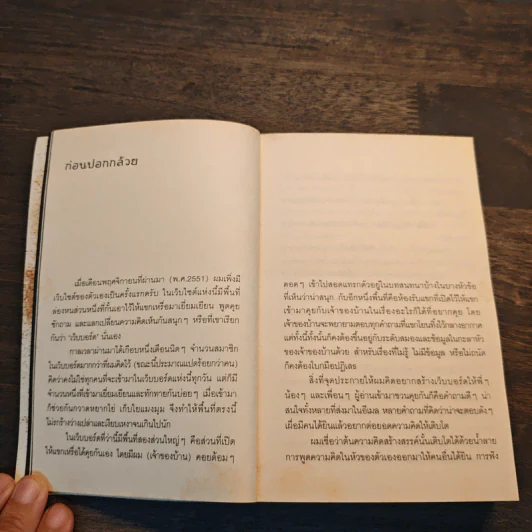 ก่อนปอกกล้วย
เมื่อเดือนพฤศจิกายนที่ผ่านมา (พ.ศ.2551) ผมเพิ่งมี
เว็บไซต์ของตัวเองเป็นครั้งแรกครับ ในเว็บไซต์แห่งนี้มีพื้นที่
สองหนส่วนหนึ่งที่กั้นเอาไว้ให้แขกเหรื่อมาเยี่ยมเยียน พูดคุย
ซักถาม และแลกเปลี่ยนความคิดเห็นกันสนุกๆ หรือที่เขาเรียก
กันว่า 'เว็บบอร์ด' นั่นเอง
กาลเวลาผ่านมาได้เกือบหนึ่งเดือนนิดๆ จำนวนสมาชิก
ในเว็บบอร์ดมากกว่าที่ผมคิดไว้ (ขณะนี้ประมาณแปดร้อยกว่าคน)
คิดว่าคงไม่ใช่ทุกคนที่จะเข้ามาในเว็บบอร์ดแห่งนี้ทุกวัน แต่ก็มี
จำนวนหนึ่งที่เข้ามาเยี่ยมเยียนและทักทายกันบ่อยๆ เมื่อเข้ามา
ก็ช่วยกันกวาดหยากไย่ เก็บใยแมงมุม จึงทำให้พื้นที่ตรงนี้
ไม่รกร้างว่างเปล่าและเงียบเหงาจนเกินไปนัก
ในเว็บบอร์ดที่ว่านี้มีพื้นที่สองส่วนใหญ่ๆ คือส่วนที่เปิด
ให้แขกเหรื่อได้คุยกันเอง โดยมีผม (เจ้าของบ้าน) คอยด้อมๆ
คอคๆ เข้าไปสอดแทรกตัวอยู่ในบทสนทนาบ้างในบางหัวข้อ
ที่เห็นว่าน่าสนุก กับอีกหนึ่งพื้นที่คือห้องรับแขกที่เปิดไว้ให้แขก
เข้ามาคุยกับเจ้าของบ้านในเรื่องอะไรก็ได้ที่อยากคุย โดย
เจ้าของบ้านจะพยายามตอบทุกคำถามที่แขกโยนทิ้งไว้กลางอากาศ
แต่ทั้งนี้ทั้งนั้นก็คงต้องขึ้นอยู่กับระดับสมองและข้อมูลในกะลาหัว
ของเจ้าของบ้านด้วย สำหรับเรื่องที่ไม่รู้ ไม่มีข้อมูล หรือไม่ถนัด
ก็คงต้องใบกมือปฏิเสธ
สิ่งที่จุดประกายให้ผมคิดอยากสร้างเว็บบอร์ดให้พี่ๆ
น้องๆ และเพื่อนๆ ผู้อ่านเข้ามาชวนคุยกันก็คือคำถามดีๆ น่า
สนใจทั้งหลายที่ส่งมาในอีเมล หลายคำถามที่คิดว่าน่าจะตอบดังๆ
เผื่อมีคนได้ยินแล้วอยากต่อยอดความคิดให้เติบโต
ผมเชื่อว่าต้นความคิดสร้างสรรค์นั้นเติบโตได้ด้วยน้ำลาย
การพูดความคิดในหัวของตัวเองออกมาให้คนอื่นได้ยิน การฟัง